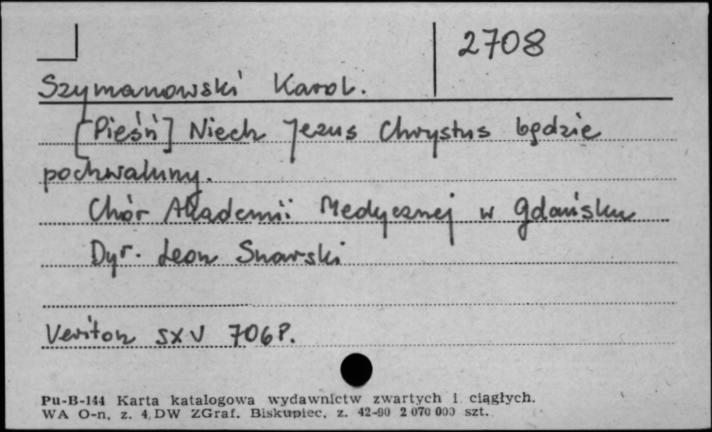 2708
Szymanowski Karol.
[Pieśń] Niech Jezus Chrystus będzie
pochwalony.
Chór Akademii Medycznej w Gdańsku
Dyr. Leon Snarski
Veriton SXV 706P.
Pu-B-144 Karta katalogowa wydawnictw zwartych i ciągłych.
WA O-n, z. 4 DW ZGraf. Biskupiec, z. 42-90 2 070 000 szt.